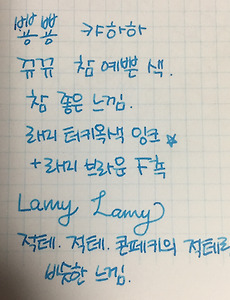 뿅뿅 캬하하
뀨뀨 참 예쁜 색.
참 좋은 느낌.
라미 터키옥색 잉크 ☆
+라미 브라운 F촉
Lamy Lamy
적테. 적테. 콘페키의 적테로
비슷한 느낌.